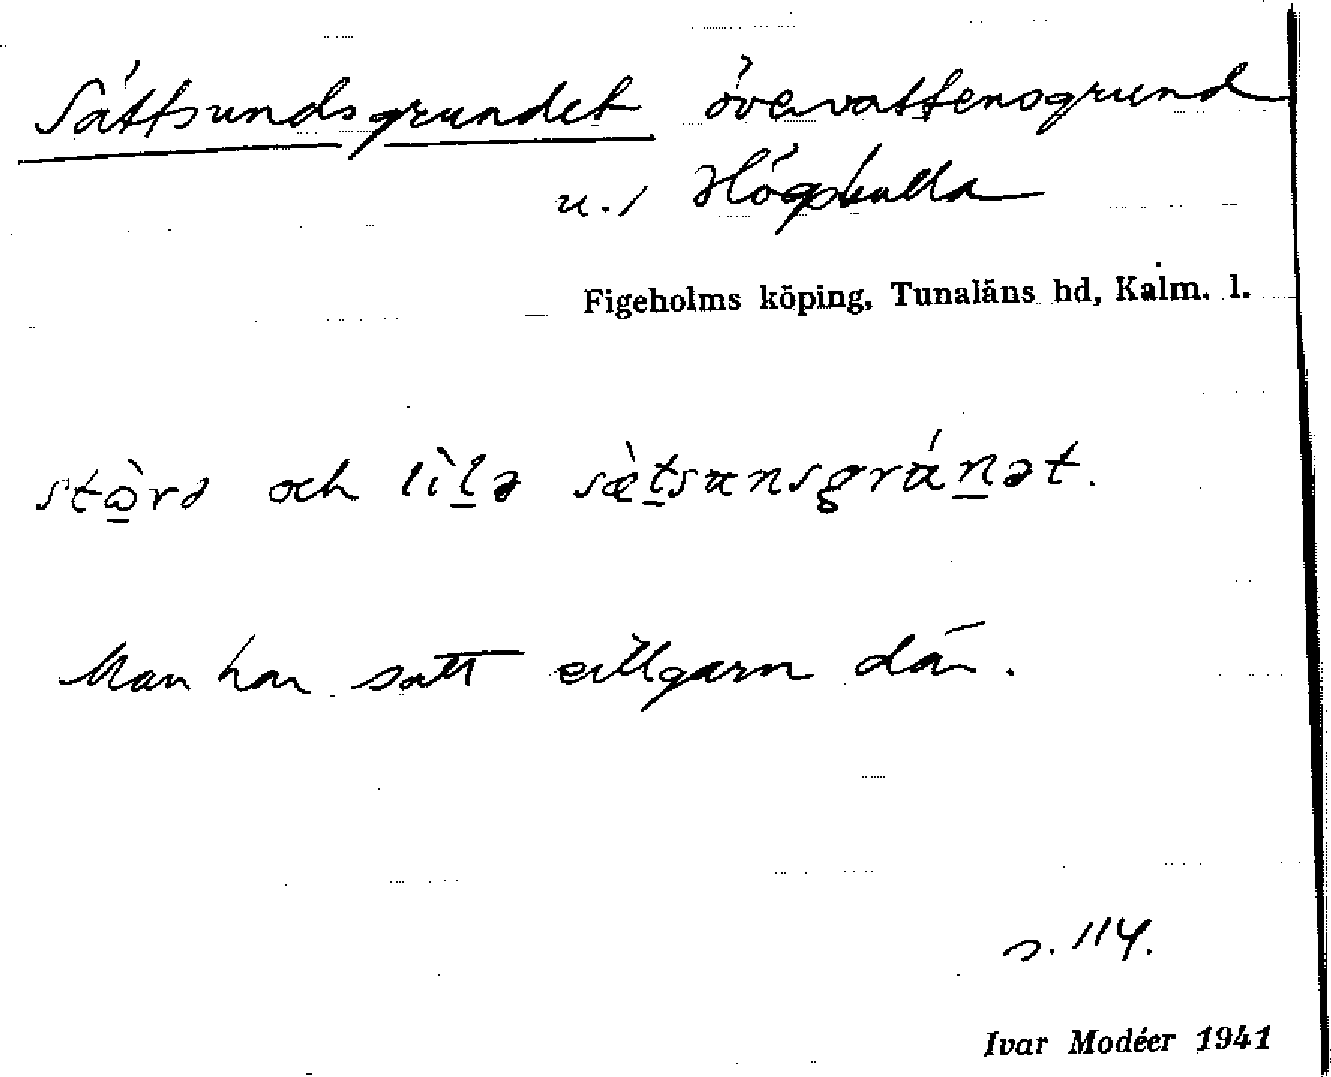 Sättsundsgrundet övervattensgrund
u. / Högskulla
Figeholms köping, Tunaläns hd, Kalm. l.
och
Man har satt sillgarn där.
s. 114.
Ivar Modéer 1941